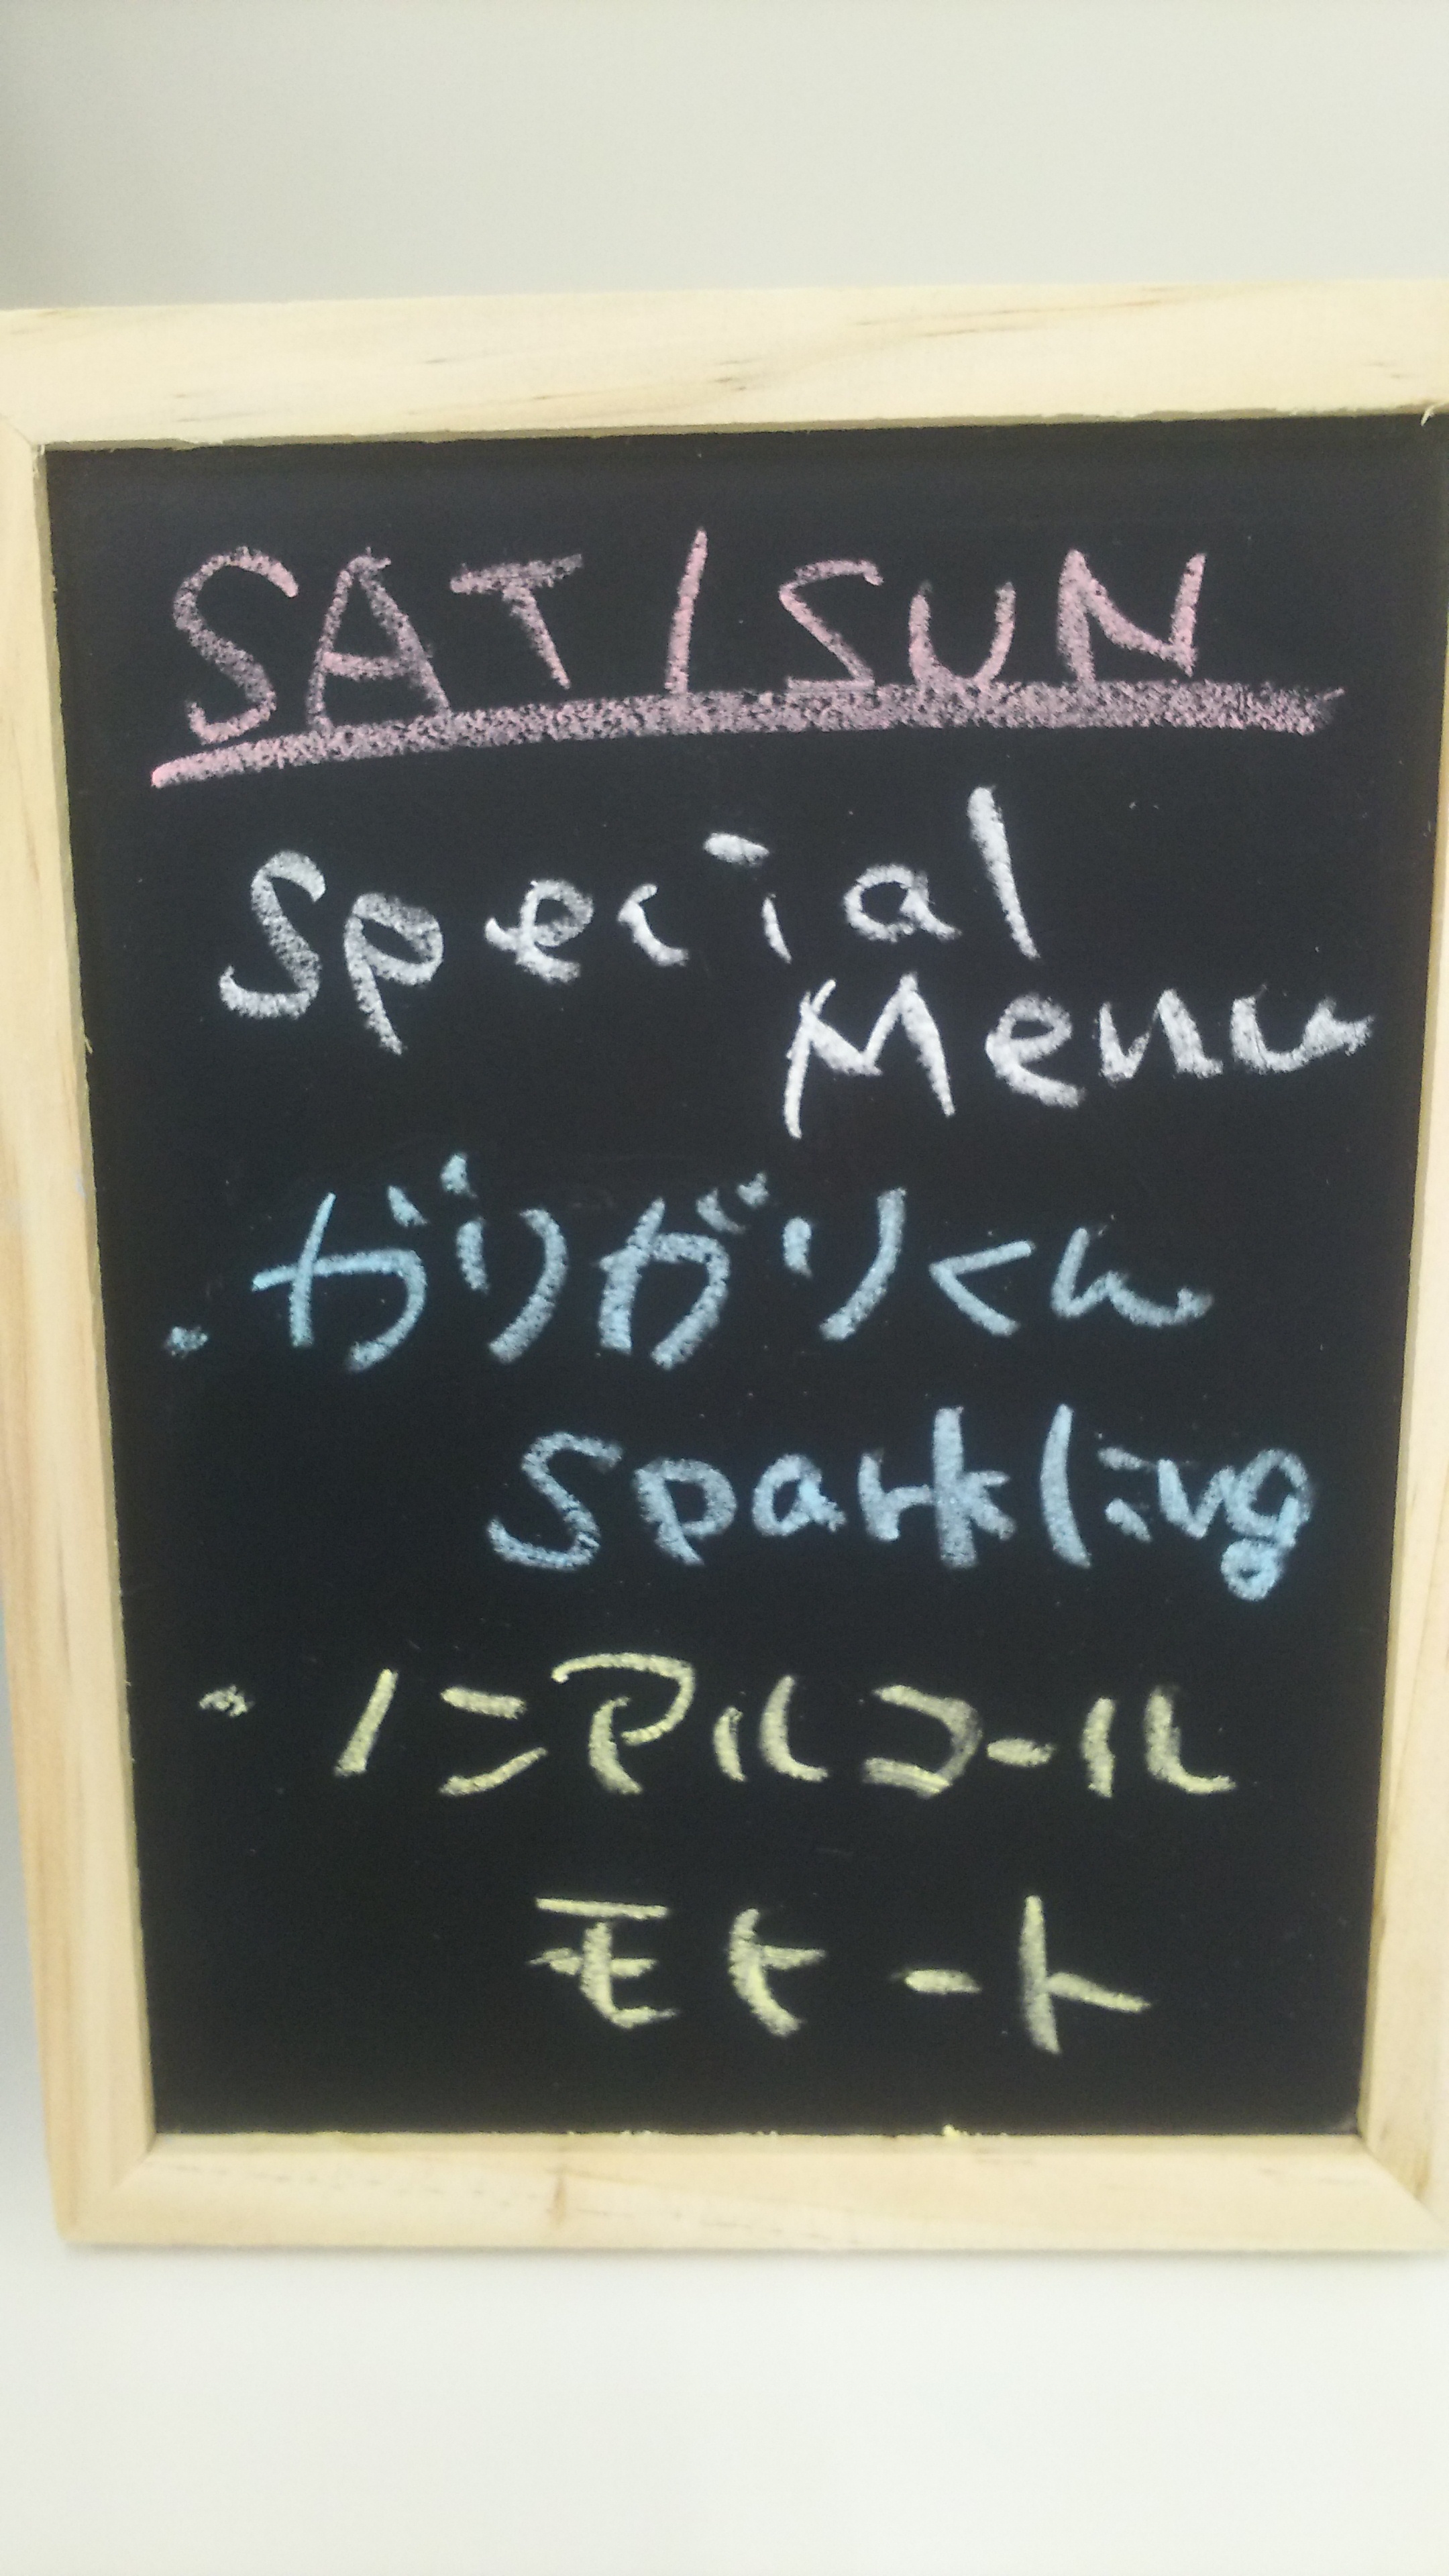 SAT/SUN
Special
Menu
・がりがりくん
Sparkling
・ノンアルコール
モヒート